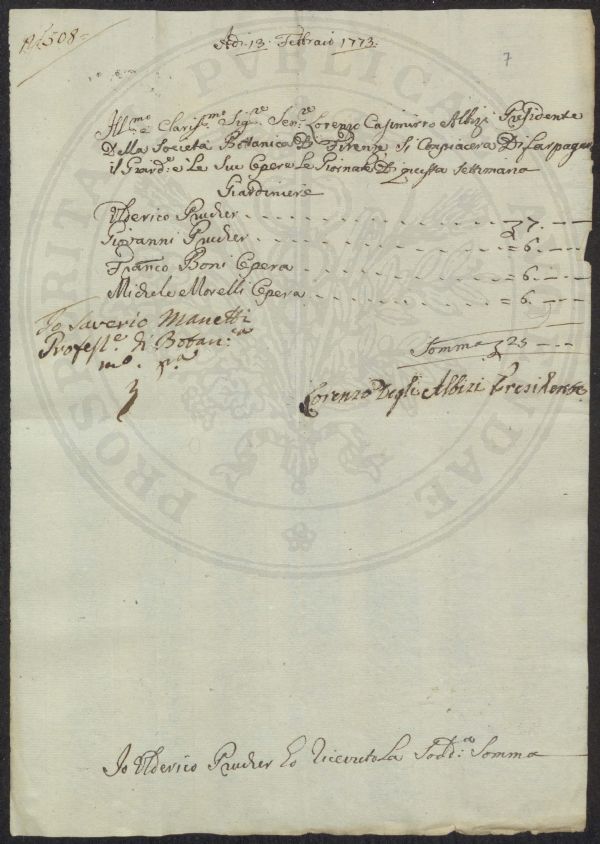 N.508=
Adi. 13. Febbraio 1773.
7
Ill.mo e Clariss.mo Sig.re Sen.re Lorenzo Casimirro Albizi Presidente
Della Societa Botanica Di Firenze Si Conpiacera Di far pagare
il Giard.e e Le Sue Opere Le Giornate Di questa Settimana
Giardiniere
Ulderico Prucker - - - - 7. - -
Giovanni Prucker - - - - = 6. - -
Franco Boni Opera - - - - = 6. - -
Michele Morelli Opera - - - - = 6. - -
Io Saverio Manetti
Profess.e di Botan.ca
m.o p.a
Somma 25 - -
Lorenzo Degli Albizi Presidente
Io Ulderico Prucker Ho Ricevuto La Sod.a Somma
PROSPERITATI PUBLICAE AUGENDAE